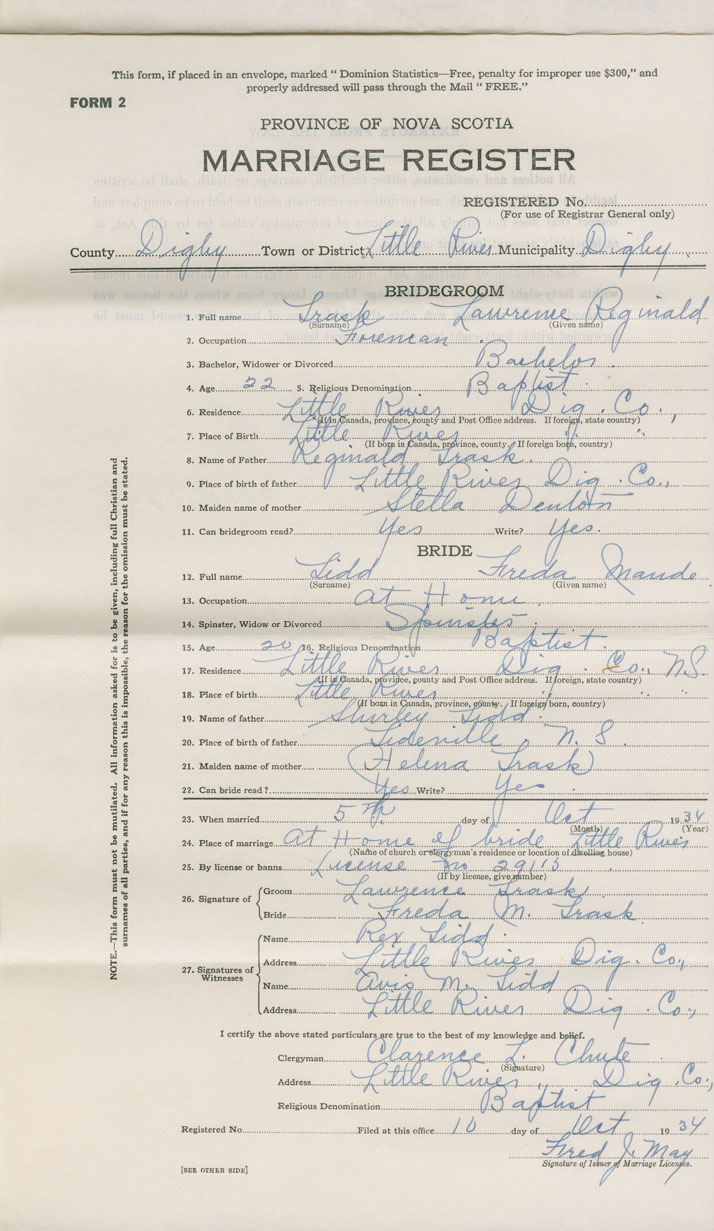 This form, if placed in an envelope, marked " Dominion Statistics—Free, penalty for improper use $300," and
properly addressed will pass through the Mail " FREE."
FORM 2
PROVINCE OF NOVA SCOTIA
MARRIAGE REGISTER
REGISTERED No.
(For use of Registrar General only)
County Digby Town or District Little River Municipality Digby
BRIDEGROOM
1. Full name Trask Lawrence Reginald
(Surname) (Given name)
2. Occupation Foreman
3. Bachelor, Widower or Divorced Bachelor
4. Age 22 5. Religious Denomination Baptist
6. Residence Little River Dig. Co.,
(If in Canada, province, county and Post Office address. If foreign, state country)
7. Place of Birth Little River " "
(If born in Canada, province, county. If foreign born, country)
8. Name of Father Reginald Trask
9. Place of birth of father Little River Dig. Co.,
10. Maiden name of mother Stella Denton
11. Can bridegroom read? Yes Write? Yes.
BRIDE
12. Full name Tidd Freda Maude
(Surname) (Given name)
13. Occupation At Home
14. Spinster, Widow or Divorced Spinster
15. Age 20 16. Religious Denomination Baptist
17. Residence Little River Dig. Co., N.S.
(If in Canada, province, county and Post Office address. If foreign, state country)
18. Place of birth Little River " " "
(If born in Canada, province, county. If foreign born, country)
19. Name of father Shirley Tidd
20. Place of birth of father Tideville, N. S.
21. Maiden name of mother (Helena Trask)
22. Can bride read? Yes Write? Yes
23. When married 5th day of Oct 1934
(Month) (Year)
24. Place of marriage At Home of bride Little River
(Name of church or clergyman's residence or location of dwelling house)
25. By license or banns License No 29115
(If by license, give number)
26. Signature of Groom Lawrence Trask
Bride Freda M. Trask
27. Signatures of Witnesses
Name Rex Tidd
Address Little River Dig. Co.,
Name Avis M. Tidd
Address Little River Dig. Co.,
I certify the above stated particulars are true to the best of my knowledge and belief.
Clergyman Clarence L. Chute
(Signature)
Address Little River, Dig. Co.,
Religious Denomination Baptist
Registered No. Filed at this office 10 day of Oct 1934
Fred J. May
Signature of Issuer of Marriage Licenses.
[SEE OTHER SIDE]
NOTE.—This form must not be mutilated. All information asked for is to be given, including full Christian and
surnames of all parties, and if for any reason this is impossible, the reason for the omission must be stated.